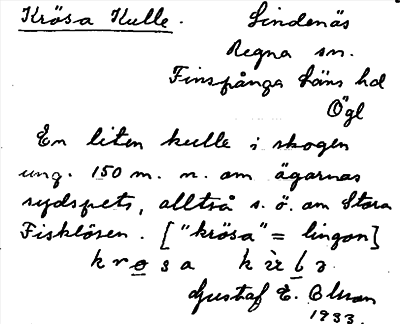 Krösa Kulle.
Lindenäs
Regna sn.
Finspånga läns hd
Ögl
En liten kulle i skogen
ung. 150 m. n. om ägarnas
sydspets, alltså s. ö. om Stora
Fisklösen. ["krösa" = lingon]
krosa
Gustaf E. Olsson
1933.